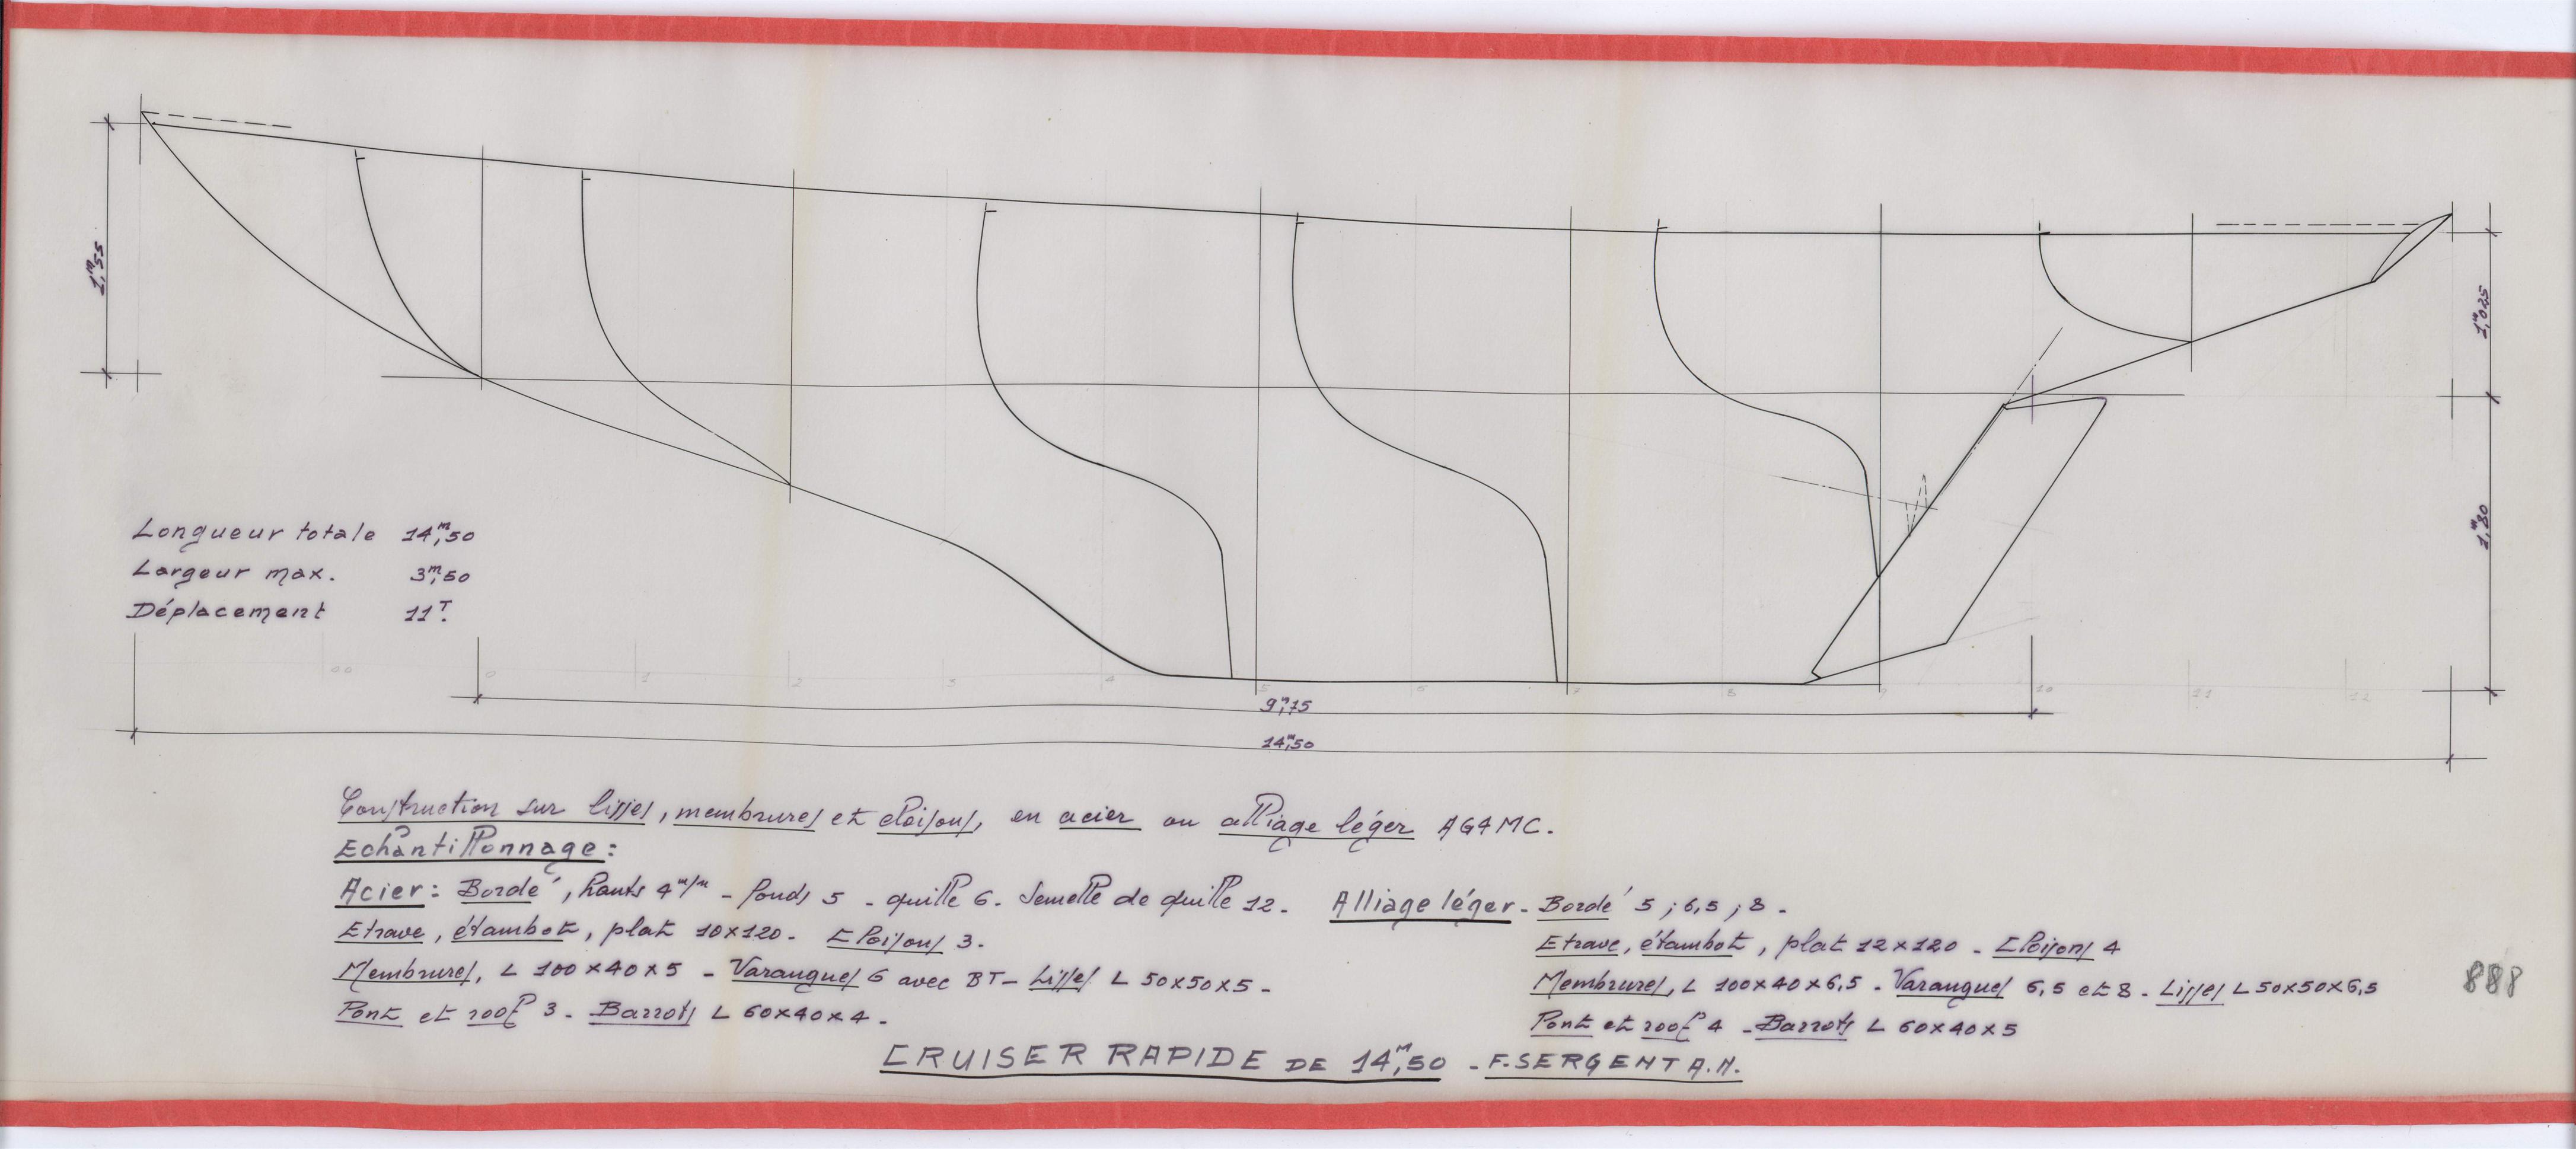 1m,55
1m,025
1m,80
Longueur totale 14m,50
Largeur max. 3m,50
Déplacement 11T.
00 0 1 2 3 4 5 6 7 8 9 10 11 12
9m,75
14m,50
Construction sur lisses, membrures et cloisons, en acier ou alliage léger AG4MC.
Echantillonnage:
Acier: Bordé, hauts 4 m/m - fonds 5 - quille 6. Semelle de quille 12.
Etrave, étambot, plat 10x120. Cloisons 3.
Membrures, L 100x40x5 - Varangues 6 avec BT - Lisses L 50x50x5 -
Pont et roof 3. Barrots L 60x40x4.
Alliage léger. Bordé 5 ; 6,5 ; 8 -
Etrave, étambot, plat 12x120 - Cloisons 4
Membrures, L 100x40x6,5 - Varangues 6,5 et 8 - Lisses L 50x50x6,5
Pont et roof 4 - Barrots L 60x40x5
888
CRUISER RAPIDE DE 14m,50 - F. SERGENT A.N.